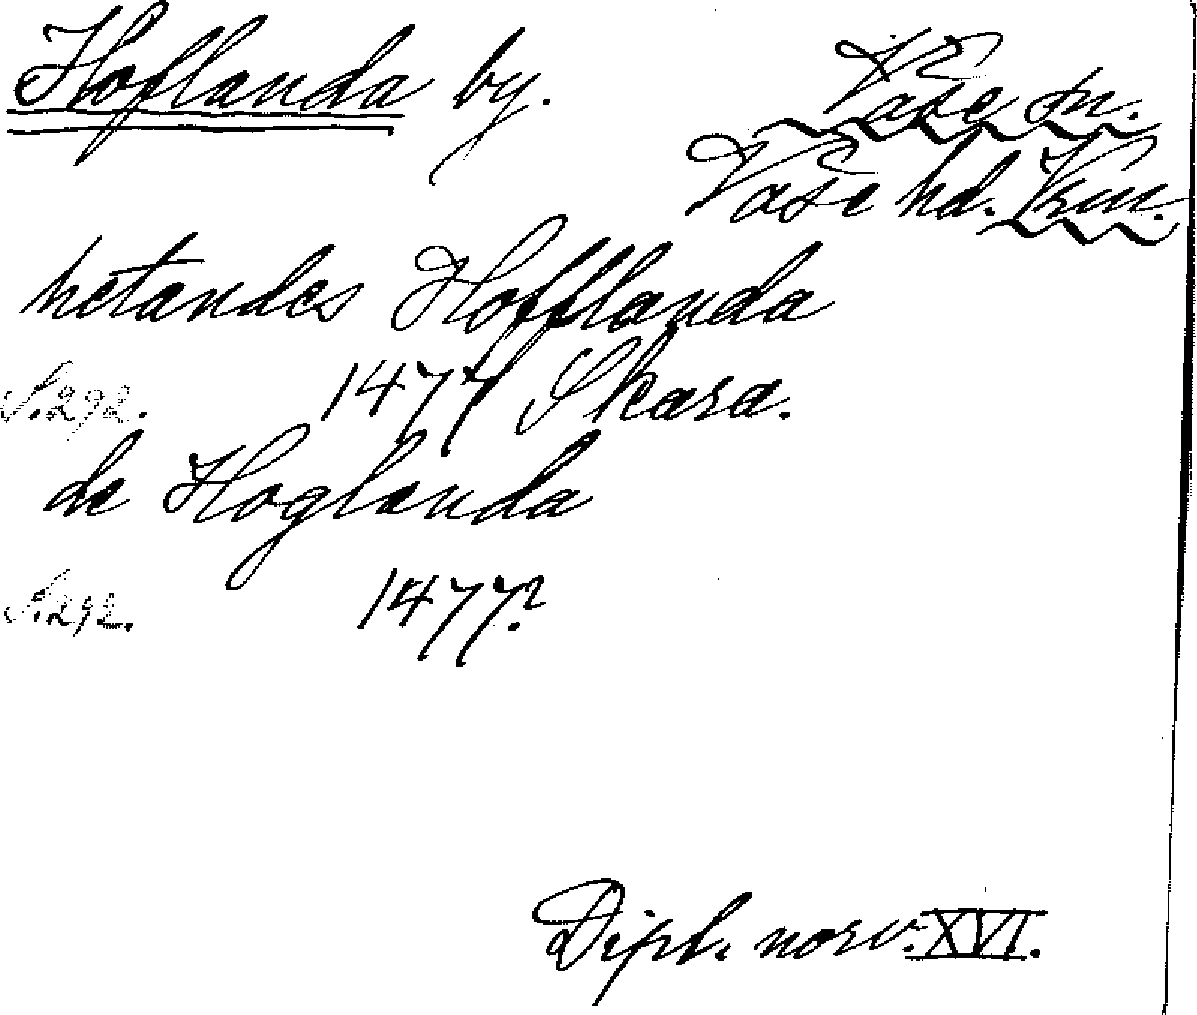 Hoflanda by.
Väse sn.
Väse hd. Vrm.
hetandes Hofflanda
S.292. 1477 Skara.
de Hoglanda
S.292. 1477?
Dipl. norv. XVI.